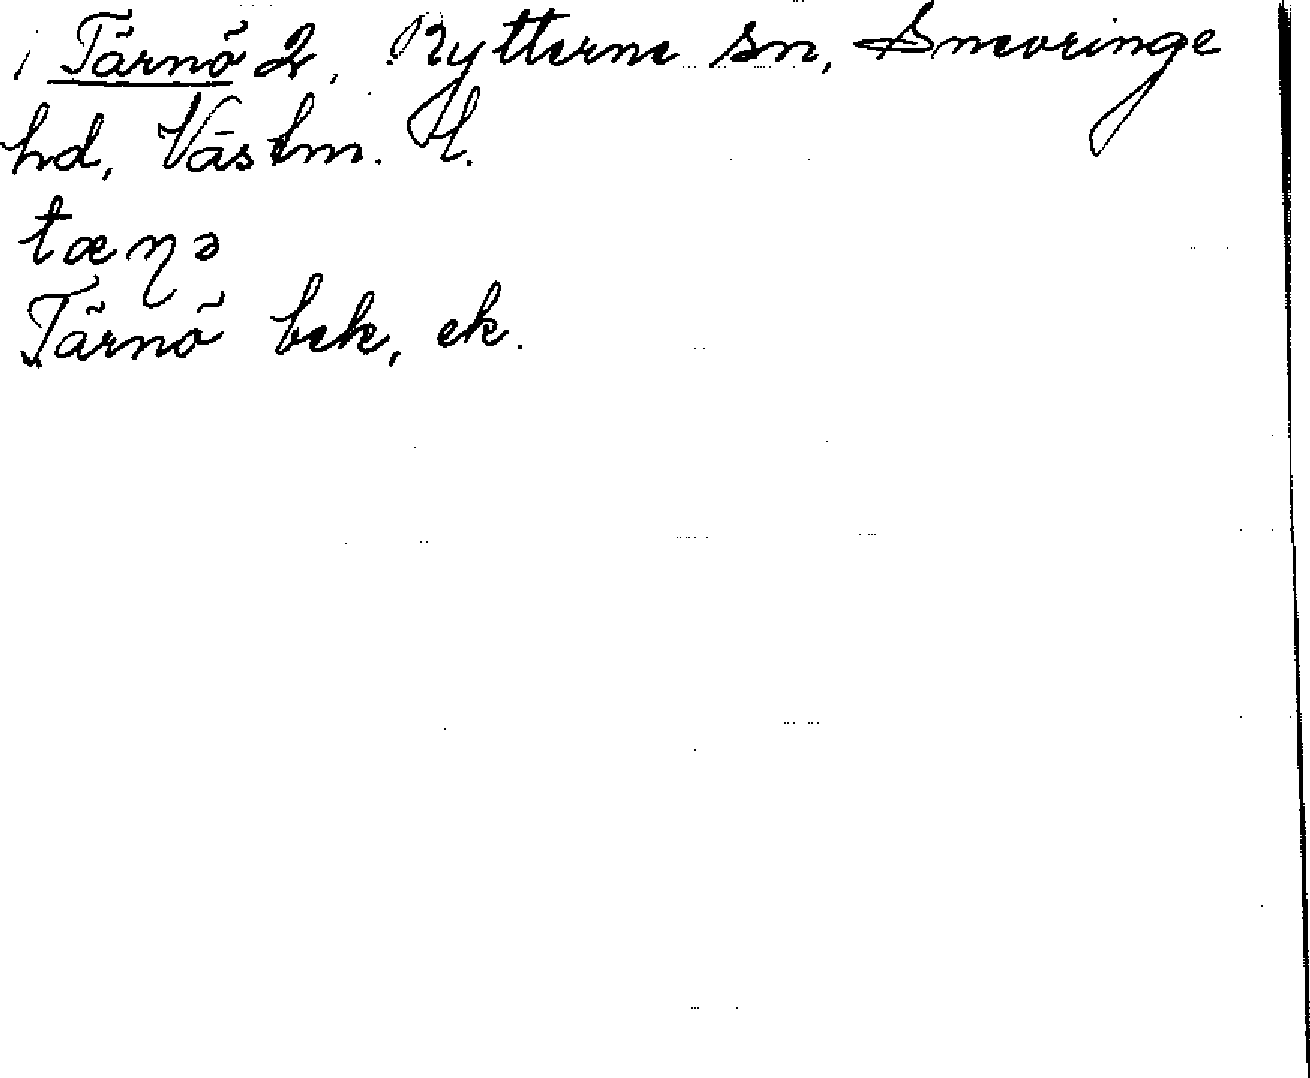 i Tärnö 2, Rytterne sn, Snevringe
hd, Västm. l.
tæɳə
Tärnö bek, ek.